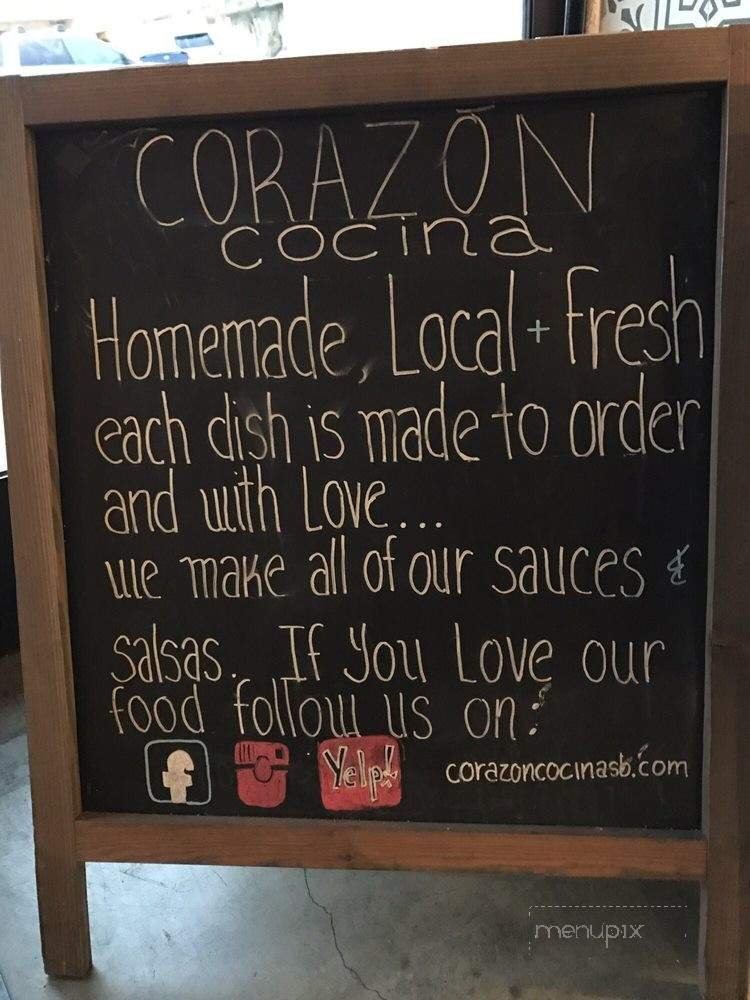 CORAZÓN
cocina
Homemade, Local + fresh
each dish is made to order
and with Love...
we make all of our sauces &
salsas. If You Love our
food follow us on:
f Yelp! corazoncocinasb.com
menupix